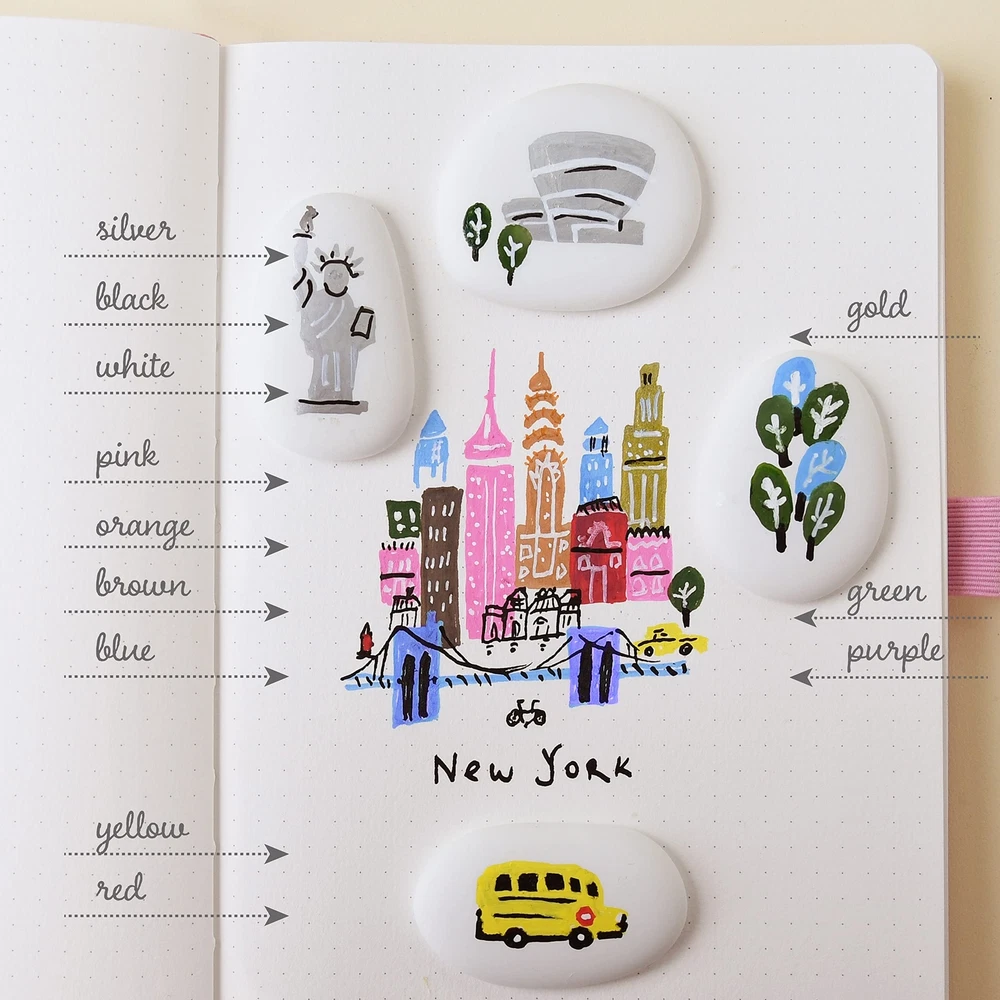 silver
black
white
pink
orange
brown
blue
yellow
red
gold
green
purple
New York